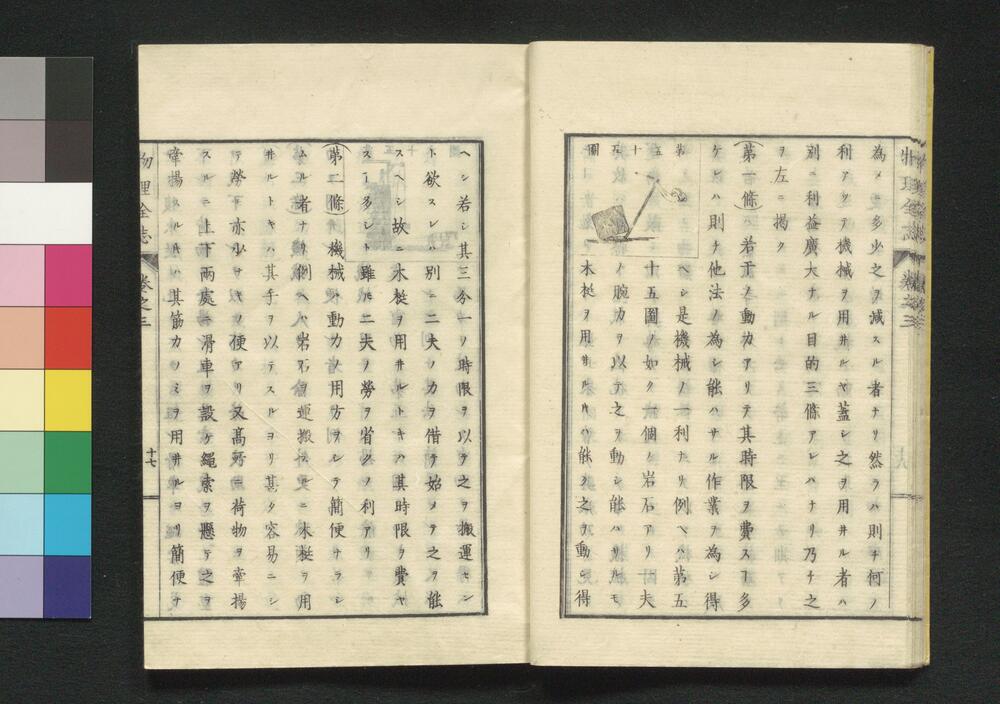 為メ多少之ヲ減スル者ナリ然ラハ則チ何ノ
利アリテ機械ヲ用井ルヤ蓋シ之ヲ用井ル者ハ
別ニ利益廣大ナル目的三條アレハナリ乃チ之
ヲ左ニ揭ク
第一條ハ若干ノ動力アリテ其時限ヲ費スヿ多
ケレハ則チ他法ノ為シ能ハサル作業ヲ為シ得
ヘシ是機械ノ一利ナリ例ヘハ第五
十五圖ノ如ク一個ノ岩石アリ一夫
ノ腕力ヲ以テ之ヲ動シ能ハサルモ
木梃ヲ用井ルハ能ク之ヲ動シ得
第五十五圖
ヘシ若シ其三分一ノ時限ヲ以テ之ヲ搬運セン
ト欲スレハ別ニ二夫ノ力ヲ借テ始メテ之ヲ能
スヘシ故ニ木梃ヲ用井ルトキハ其時限ヲ費ヤ
スヿ多シト雖モ二夫ノ勞ヲ省クノ利アリ
第二條ハ機械ハ動力ノ用方ヲシテ簡便ナラシ
ムル者ナリ例ヘハ岩石ヲ運搬スルニ木梃ヲ用
井ルトキハ其手ヲ以テスルヨリ甚タ容易ニシ
テ勞モ亦少ナキノ便アリ又高所ニ荷物ヲ牽揚
スルニ上下兩處ニ滑車ヲ設ケ繩索ヲ懸ケテ之ヲ
牽揚スルハ其筋力ノミヲ用井ルヨリ簡便ナ
物理全志
卷之三
十七